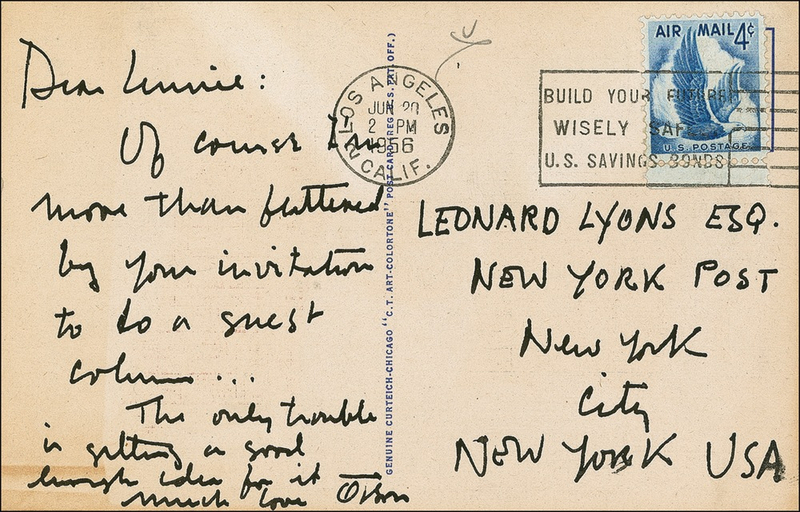 Dear Lennie:
Of course I'm
more than flattered
by your invitation
to do a guest
column...
The only trouble
is getting a good
enough idea for it
Much love Orson
GENUINE CURTEICH-CHICAGO "C.T. ART-COLORTONE" POST CARD (REG. U.S. PAT. OFF.)
LOS ANGELES
JUN 20
2 PM
1956
CALIF.
BUILD YOUR FUTURE
WISELY SAFELY
U.S. SAVINGS BONDS
AIR MAIL 4¢
U.S. POSTAGE
LEONARD LYONS ESQ.
NEW YORK POST
New York
City
NEW YORK USA